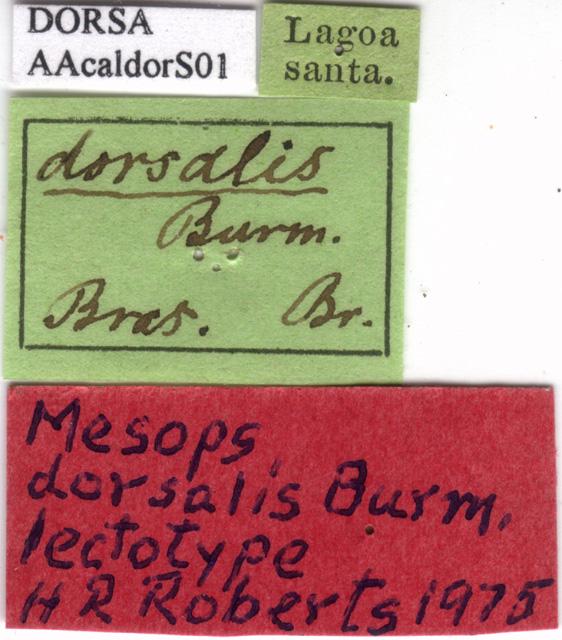 DORSA
AAcaldorS01
Lagoa
santa.
dorsalis
Burm.
Bras. Br.
Mesops
dorsalis Burm.
lectotype
H R Roberts 1975